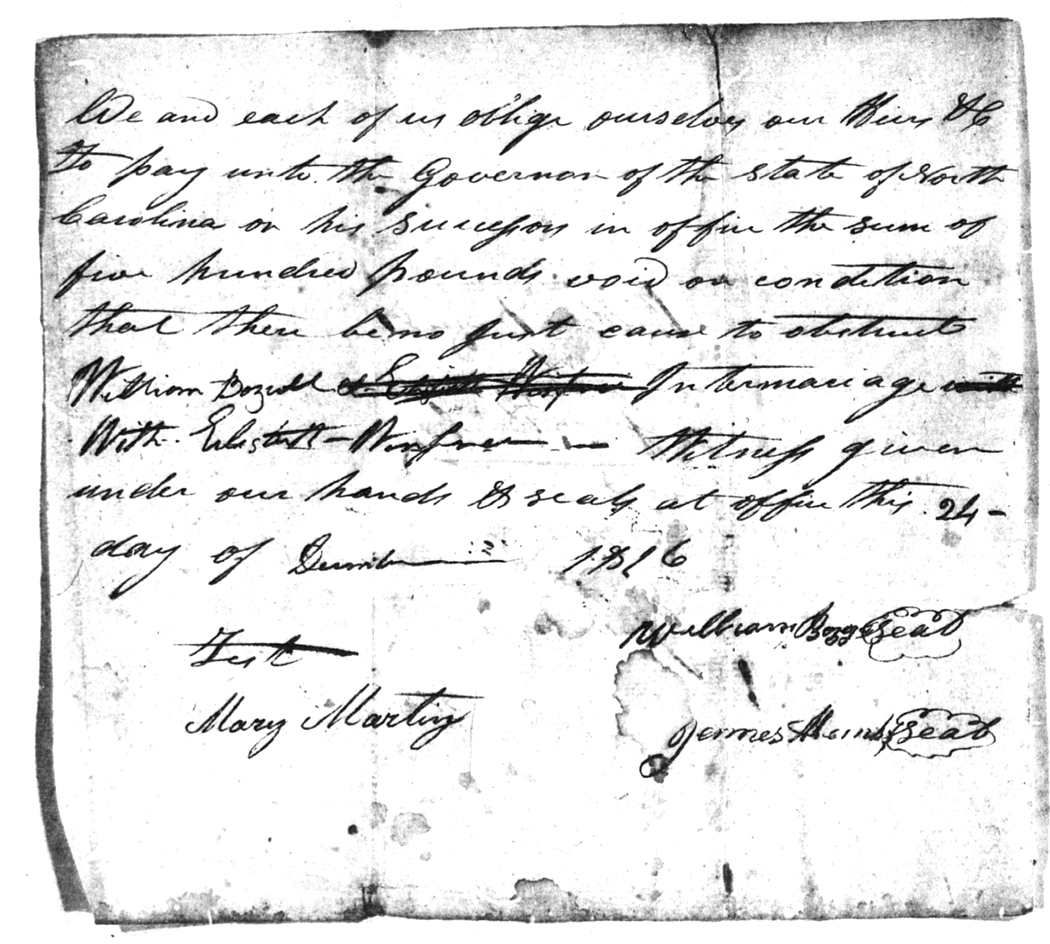 We and each of us oblige ourselves our Heirs &C
To pay unto the Governor of the State of North
Carolina or his Successors in office the sum of
five hundred pounds void on condition
that there be no just cause to obstruct
William Intermariage
With
Witness given
under our hands & seals at office this 24
day of 1816
Test
William Seal
Mary Martin
James Seal